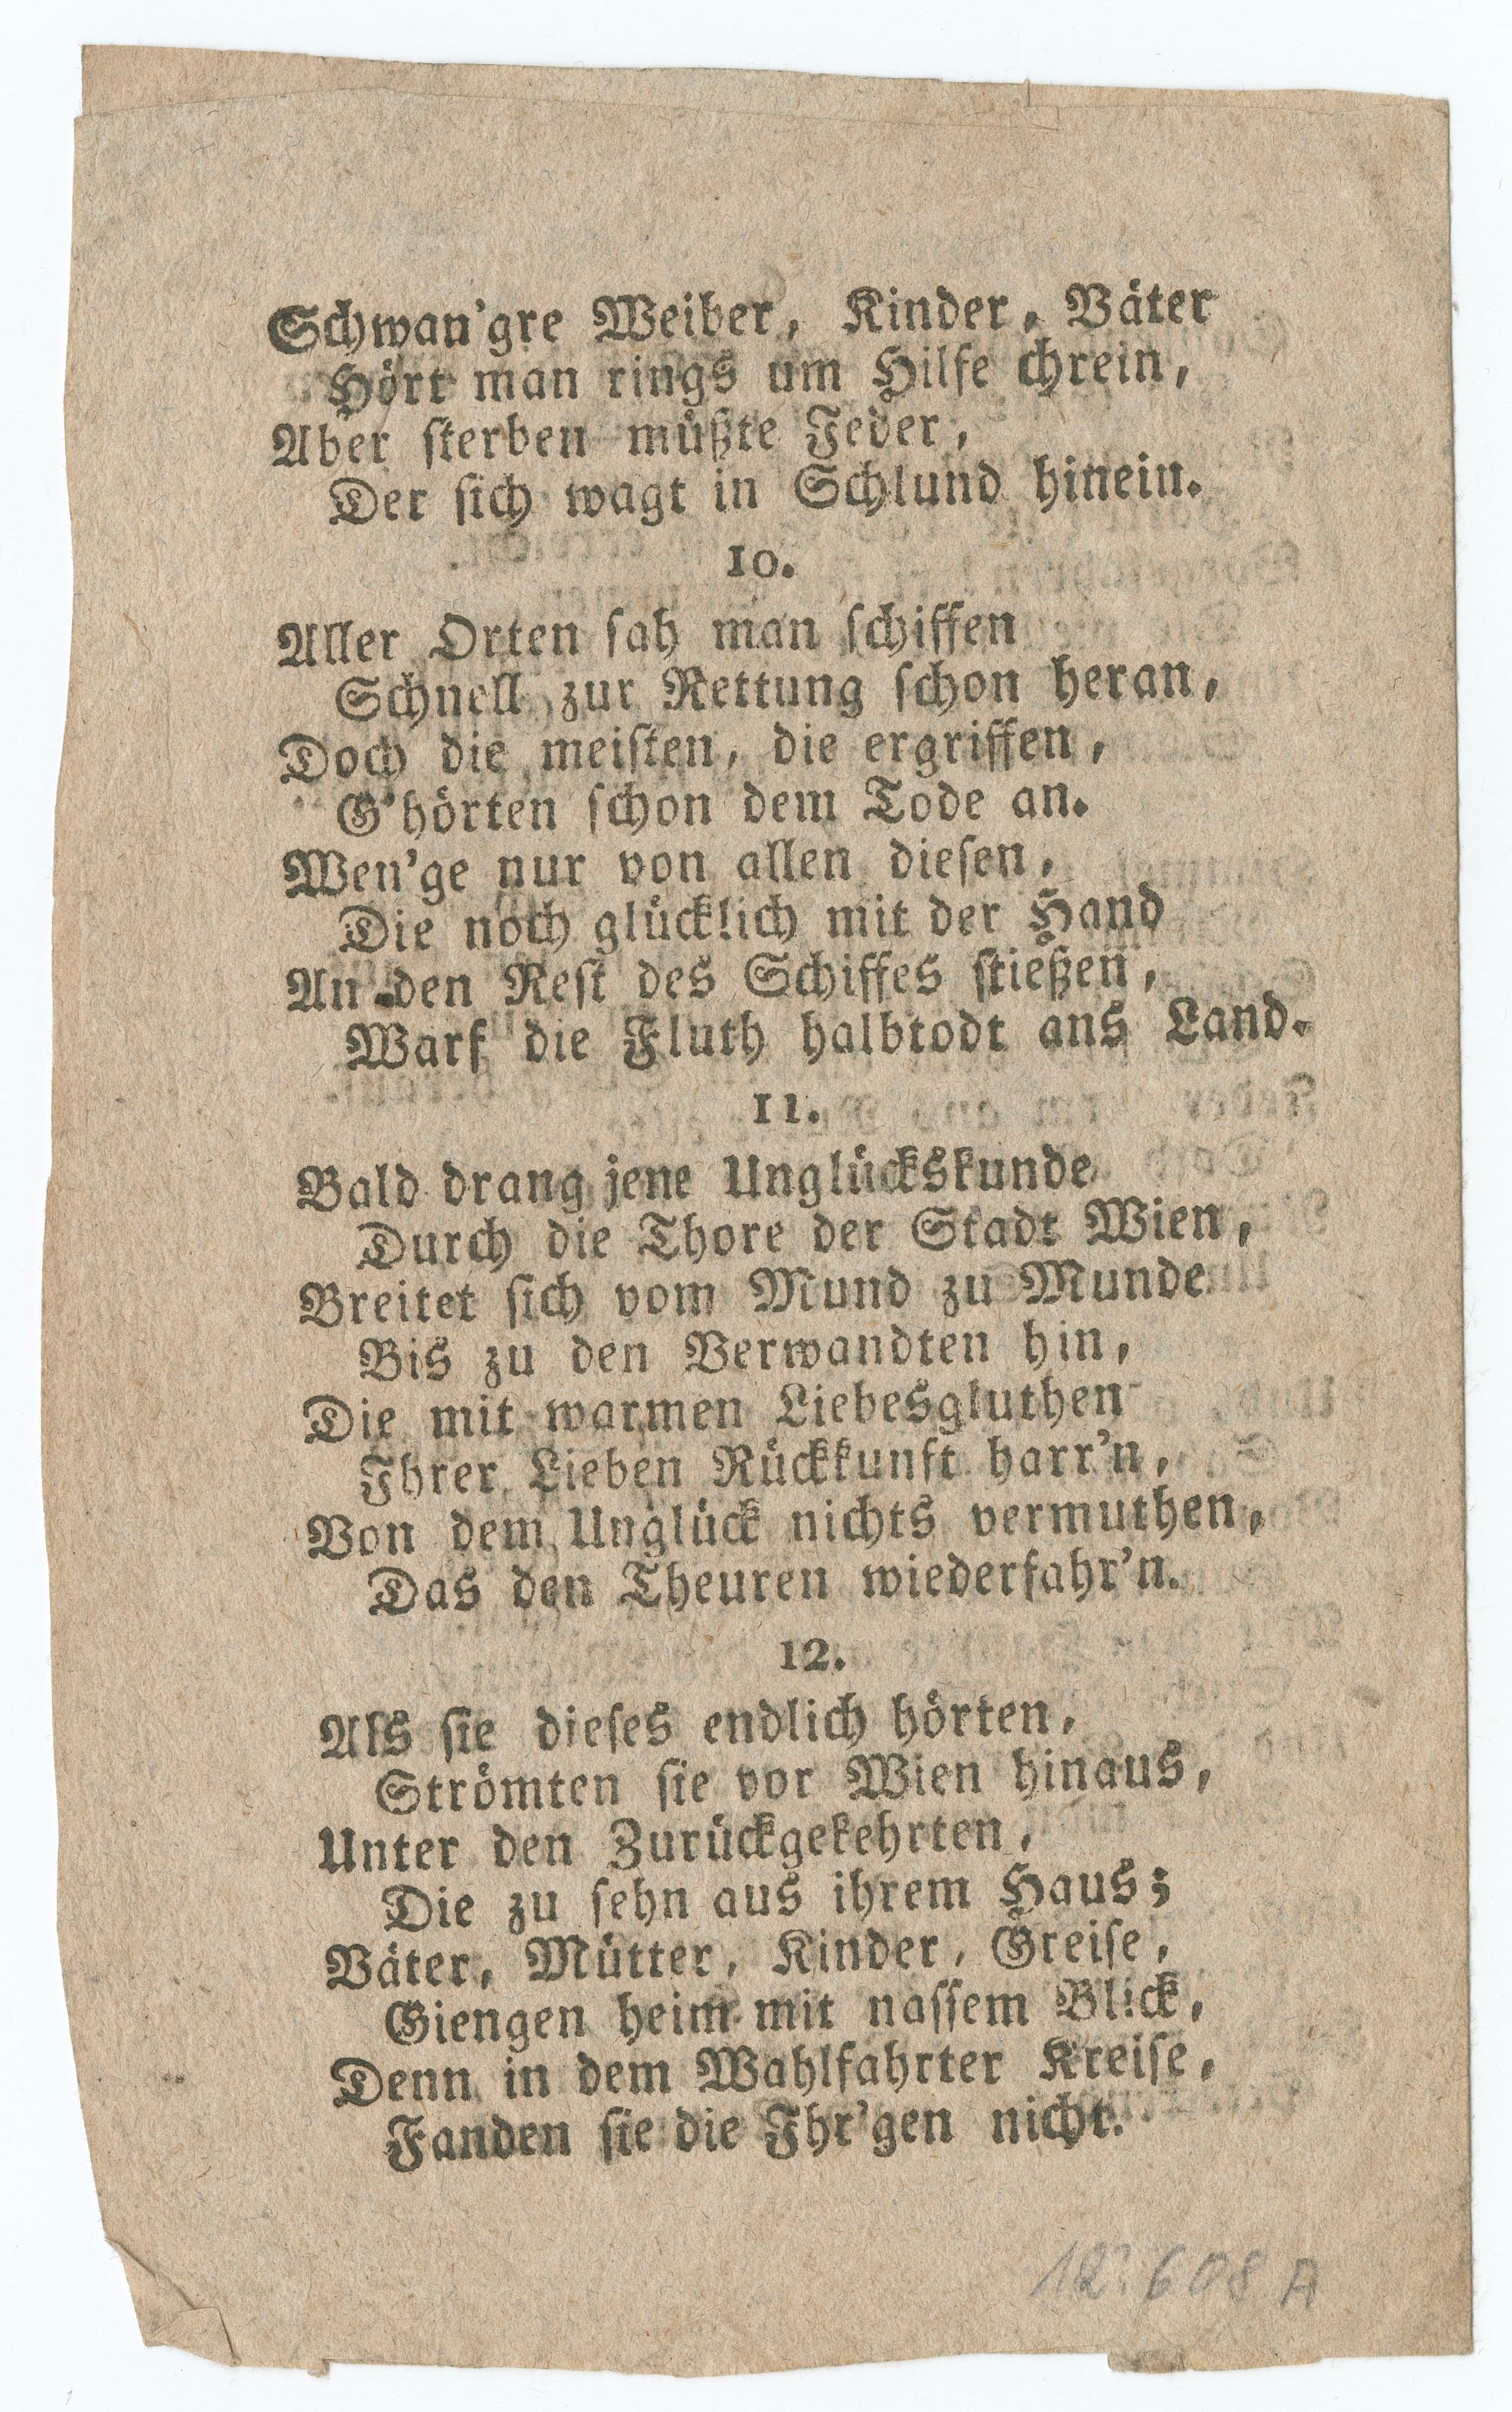 Schwan'gre Weiber, Kinder, Väter
Hört man rings um Hilfe chrein,
Aber sterben müßte Jeder,
Der sich wagt in Schlund hinein.
10.
Aller Orten sah man schiffen
Schnell zur Rettung schon heran,
Doch die meisten, die ergriffen,
G'hörten schon dem Tode an.
Wen'ge nur von allen diesen,
Die noch glücklich mit der Hand
An den Rest des Schiffes stießen,
Warf die Fluth halbtodt ans Land.
11.
Bald drang jene Unglückskunde
Durch die Thore der Stadt Wien,
Breitet sich vom Mund zu Munde
Bis zu den Verwandten hin,
Die mit warmen Liebesgluthen
Ihrer Lieben Rückkunft harr'n,
Von dem Unglück nichts vermuthen,
Das den Theuren wiederfahr'n.
12.
Als sie dieses endlich hörten,
Strömten sie vor Wien hinaus,
Unter den Zurückgekehrten,
Die zu sehn aus ihrem Haus;
Väter, Mütter, Kinder, Greise,
Giengen heim mit nassem Blick,
Denn in dem Wahlfahrter Kreise,
Fanden sie die Ihr'gen nicht.
12.608 A